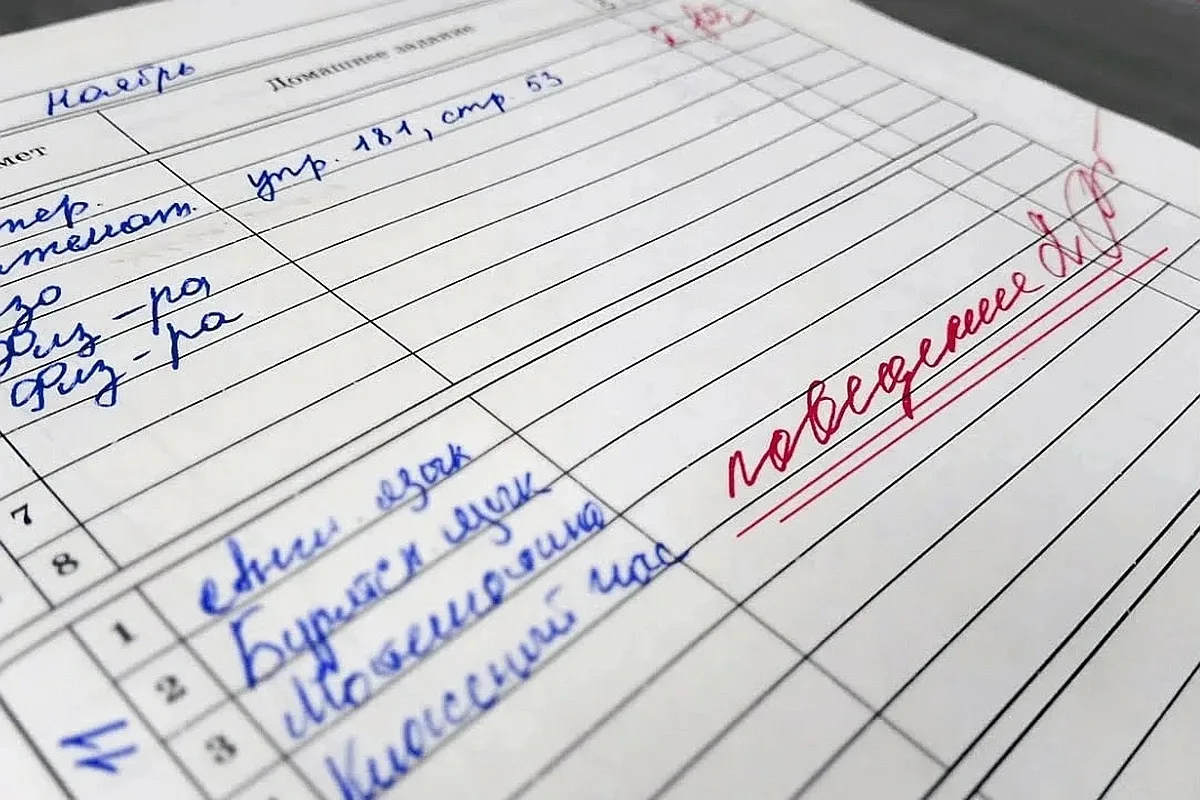 ноябрь
Домашнее задание
мет
пер. упр. 181, стр. 53
темат.
зо
Физ-ра
Физ-ра
7
8
1 Англ. язык
поведение 2
2 Бурятск. язык
3 Математика
Классный час
11